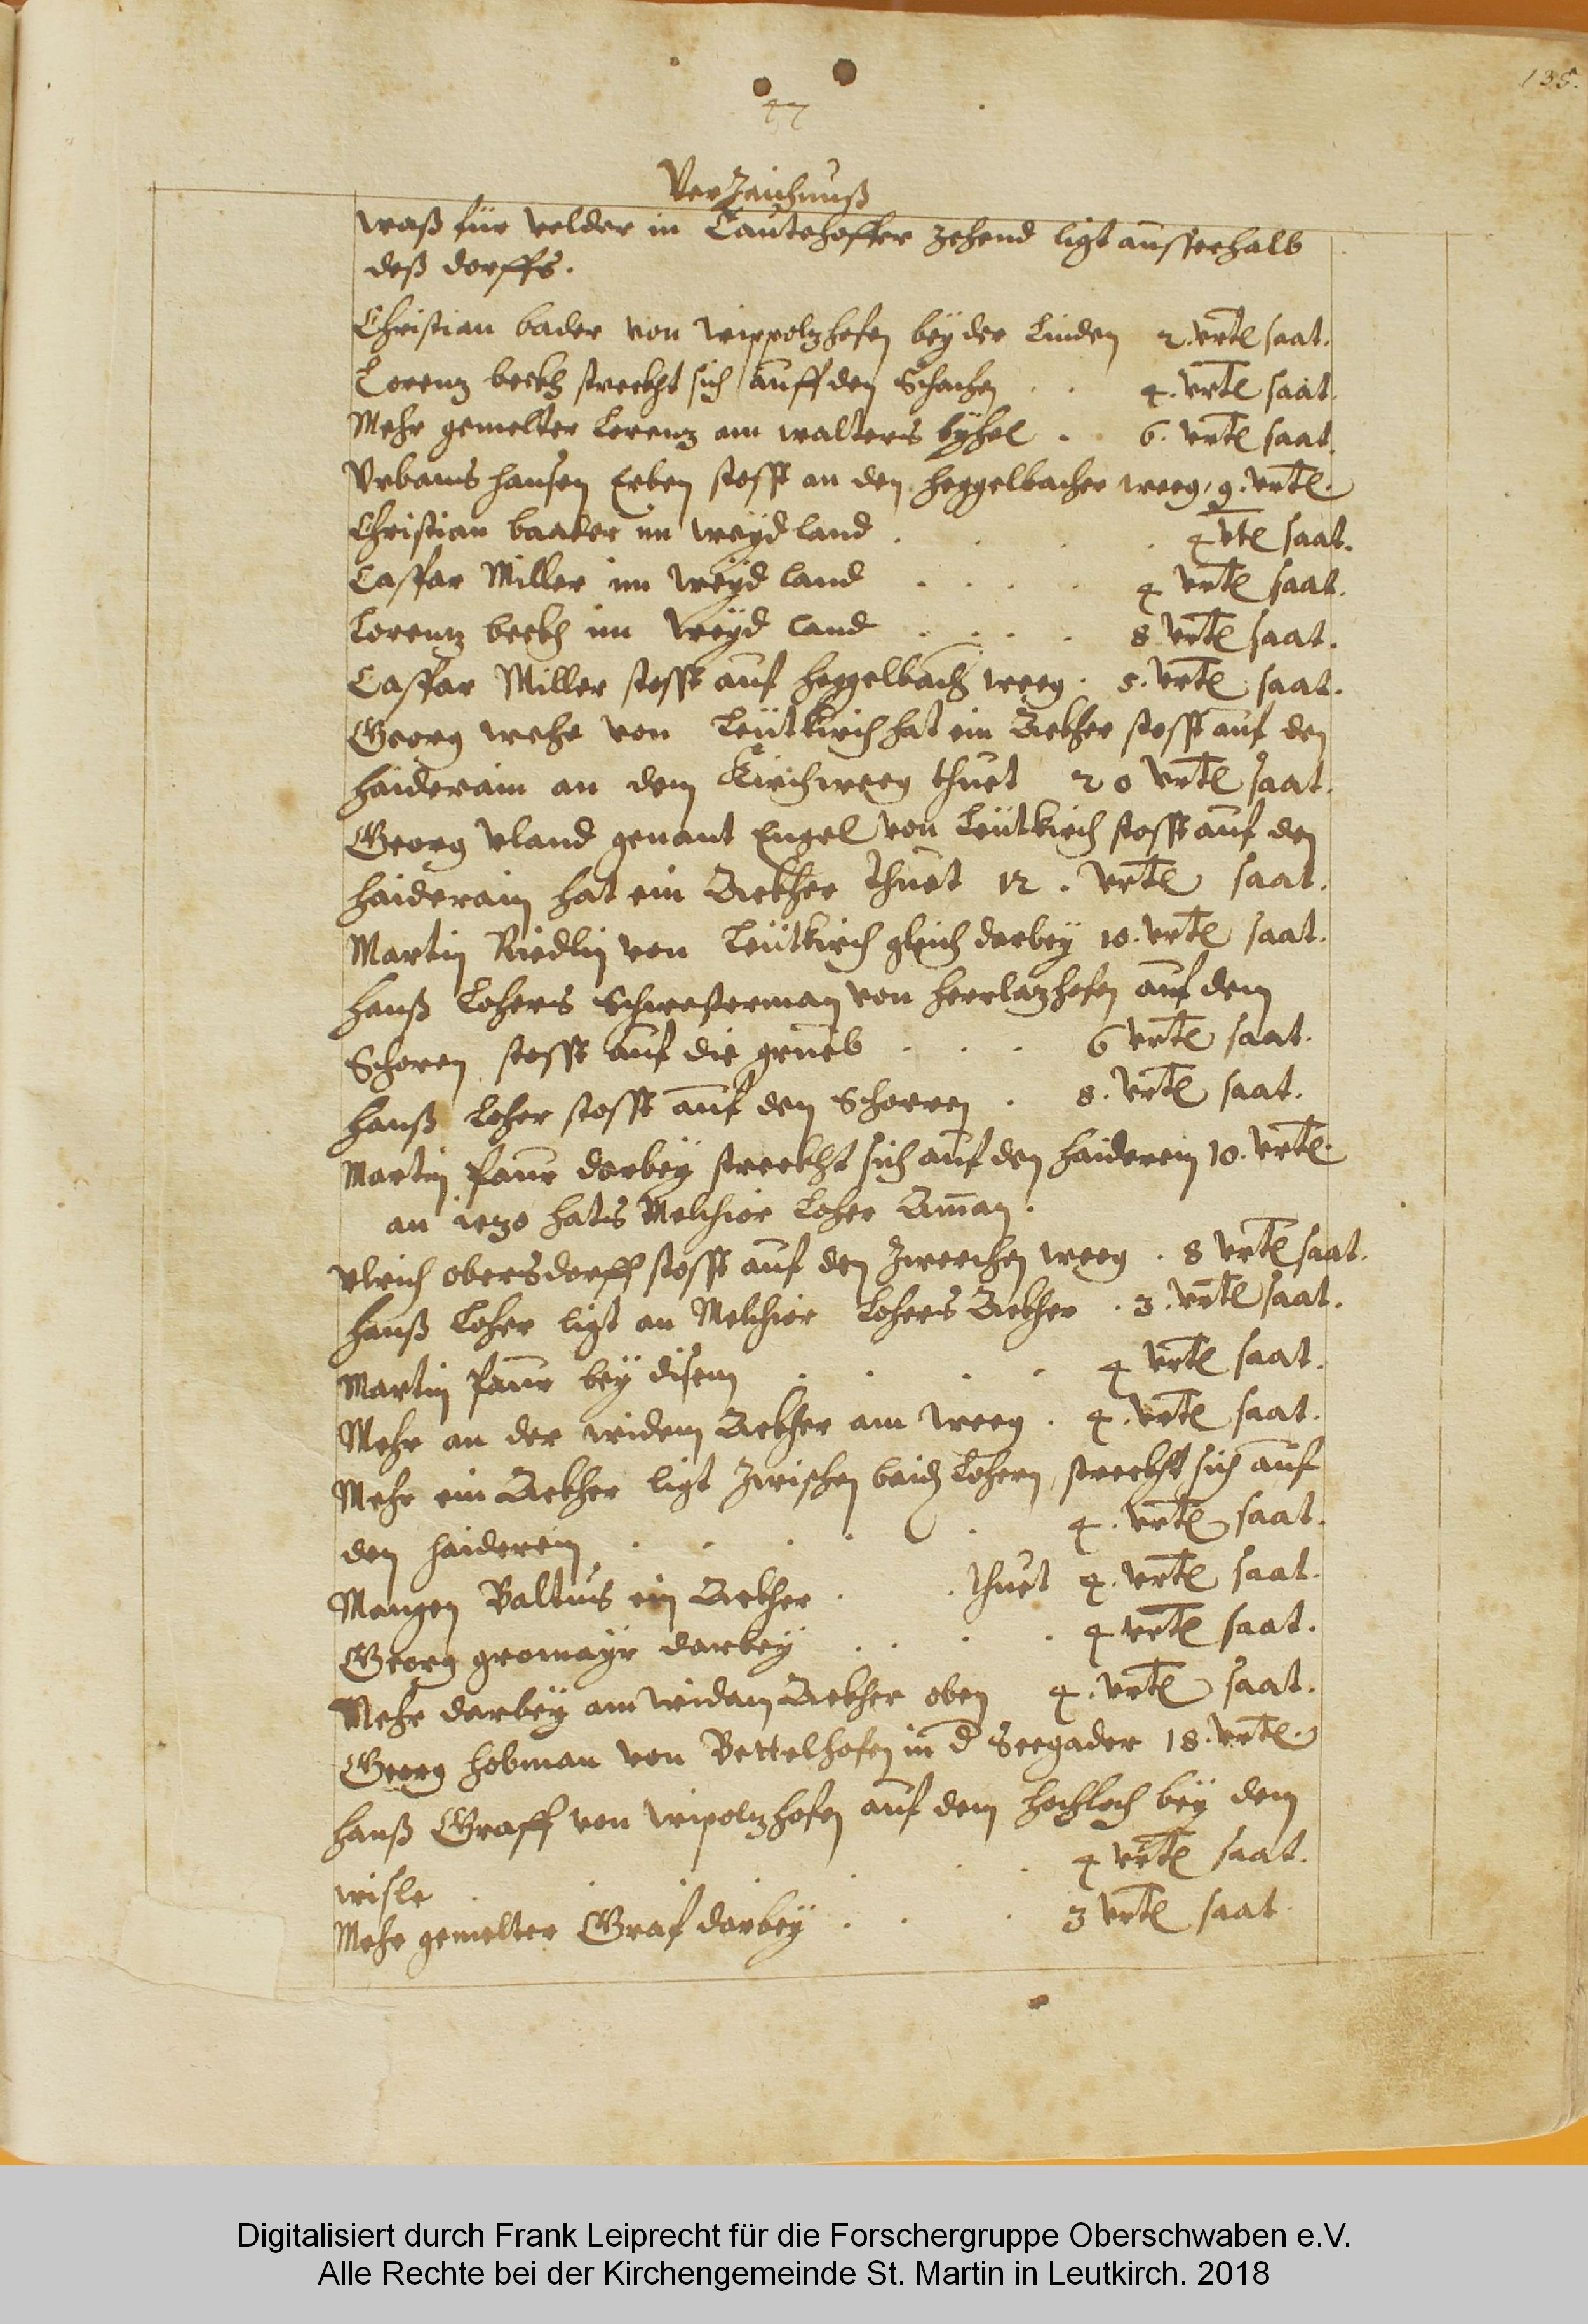 135.
47
VerZaichnuß
waß für velder in Tautehoffer zehend ligt ausserhalb
deß dorffs.
Christian bader von wippolzhofen bey der Linden 2. vrtl saat.
Lorenz beckh streckht sich auff den Schachen . . 4. vrtl saat.
Mehr gemelter Lorenz am walters byhel . 6. vrtl saat.
Vrbans hansen Erben stosst an den heggelbacher weeg, 9. vrtl.
Christian baader im weyd land . . . . 4 vtl saat.
Caspar Miller im weyd land . . . . 4 vrtl saat.
Lorentz beckh im weyd land . . . . 8 vrtl saat.
Caspar Miller stosst auf heggelbach weeg . 5. vrtl saat.
Georg wehe von Leutkirch hat ein Ackher stosst auf den
haiderain an dem Kirchweeg thuet 20 vrtl saat.
Georg vland genant Engel von Leutkirch stosst auf den
haiderain hat ein Ackher thuet 12 . vrtl saat.
Martin Riedlin von Leutkirch gleich darbey 10. vrtl saat.
Hanß Lohers Schwesterman von herlazhofen auf dem
Schoren stosst auf die grueb . . . 6 vrtl saat.
Hanß Loher stosst auf den Schorren . 8. vrtl saat.
Martin Paur darbey streckht sich auf den haiderein 10. vrtl.
an iezo hats Melchior Loher Aman.
Vlrich obersdorff stosst auf den Zwerchen weeg . 8 vrtl saat.
Hanß Loher ligt an Melchior Lohers Ackher . 3. vrtl saat.
Martin Paur bey disem . . . . 4 vrtl saat.
Mehr an der widem Ackher am weeg . 4. vrtl saat.
Mehr ein Ackher ligt Zwischen beide Lohern, streckht sich auf
den haiderein . . . . . 4. vrtl saat.
Mangen Baltus ein Ackher . . thuet 4. vrtl saat.
Georg gromayr darbey . . . . 4 vrtl saat.
Mehr darbey am widam Ackher oben 4. vrtl saat.
Georg hobman von Bettelhofen in d Seegader 18. vrtl.
Hanß Graff von wipolzhofen auf dem hochloch bey dem
wisle . . . . . . 4 vrtl saat.
Mehr gemelter Graf darbey . . . 3 vrtl saat.
Digitalisiert durch Frank Leiprecht für die Forschergruppe Oberschwaben e.V.
Alle Rechte bei der Kirchengemeinde St. Martin in Leutkirch. 2018